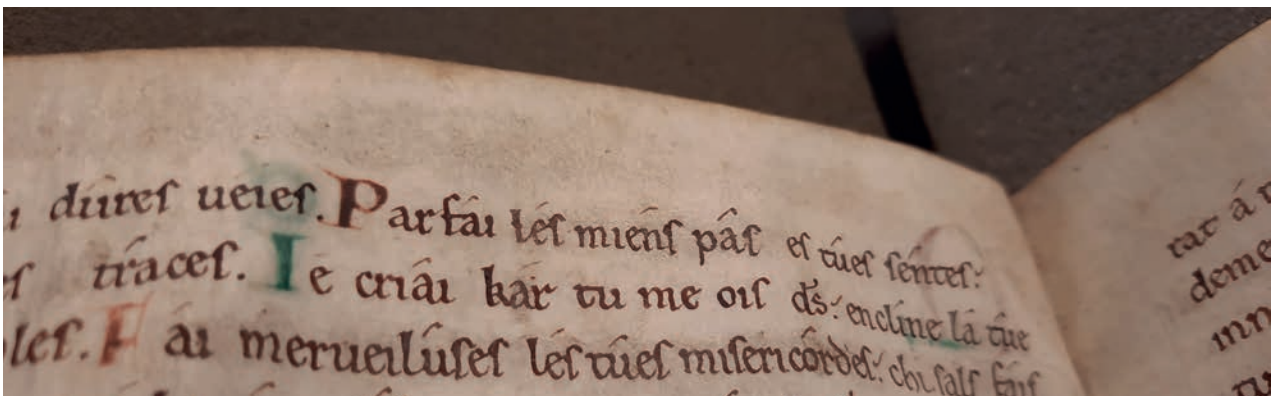 dures ueies. Parfai les miens pas es tues sentes:
traces. Ie criai kar tu me ois ds: encline la tue
les. Fai merueiluses les tues misericordes: chi sals
rat á
deme